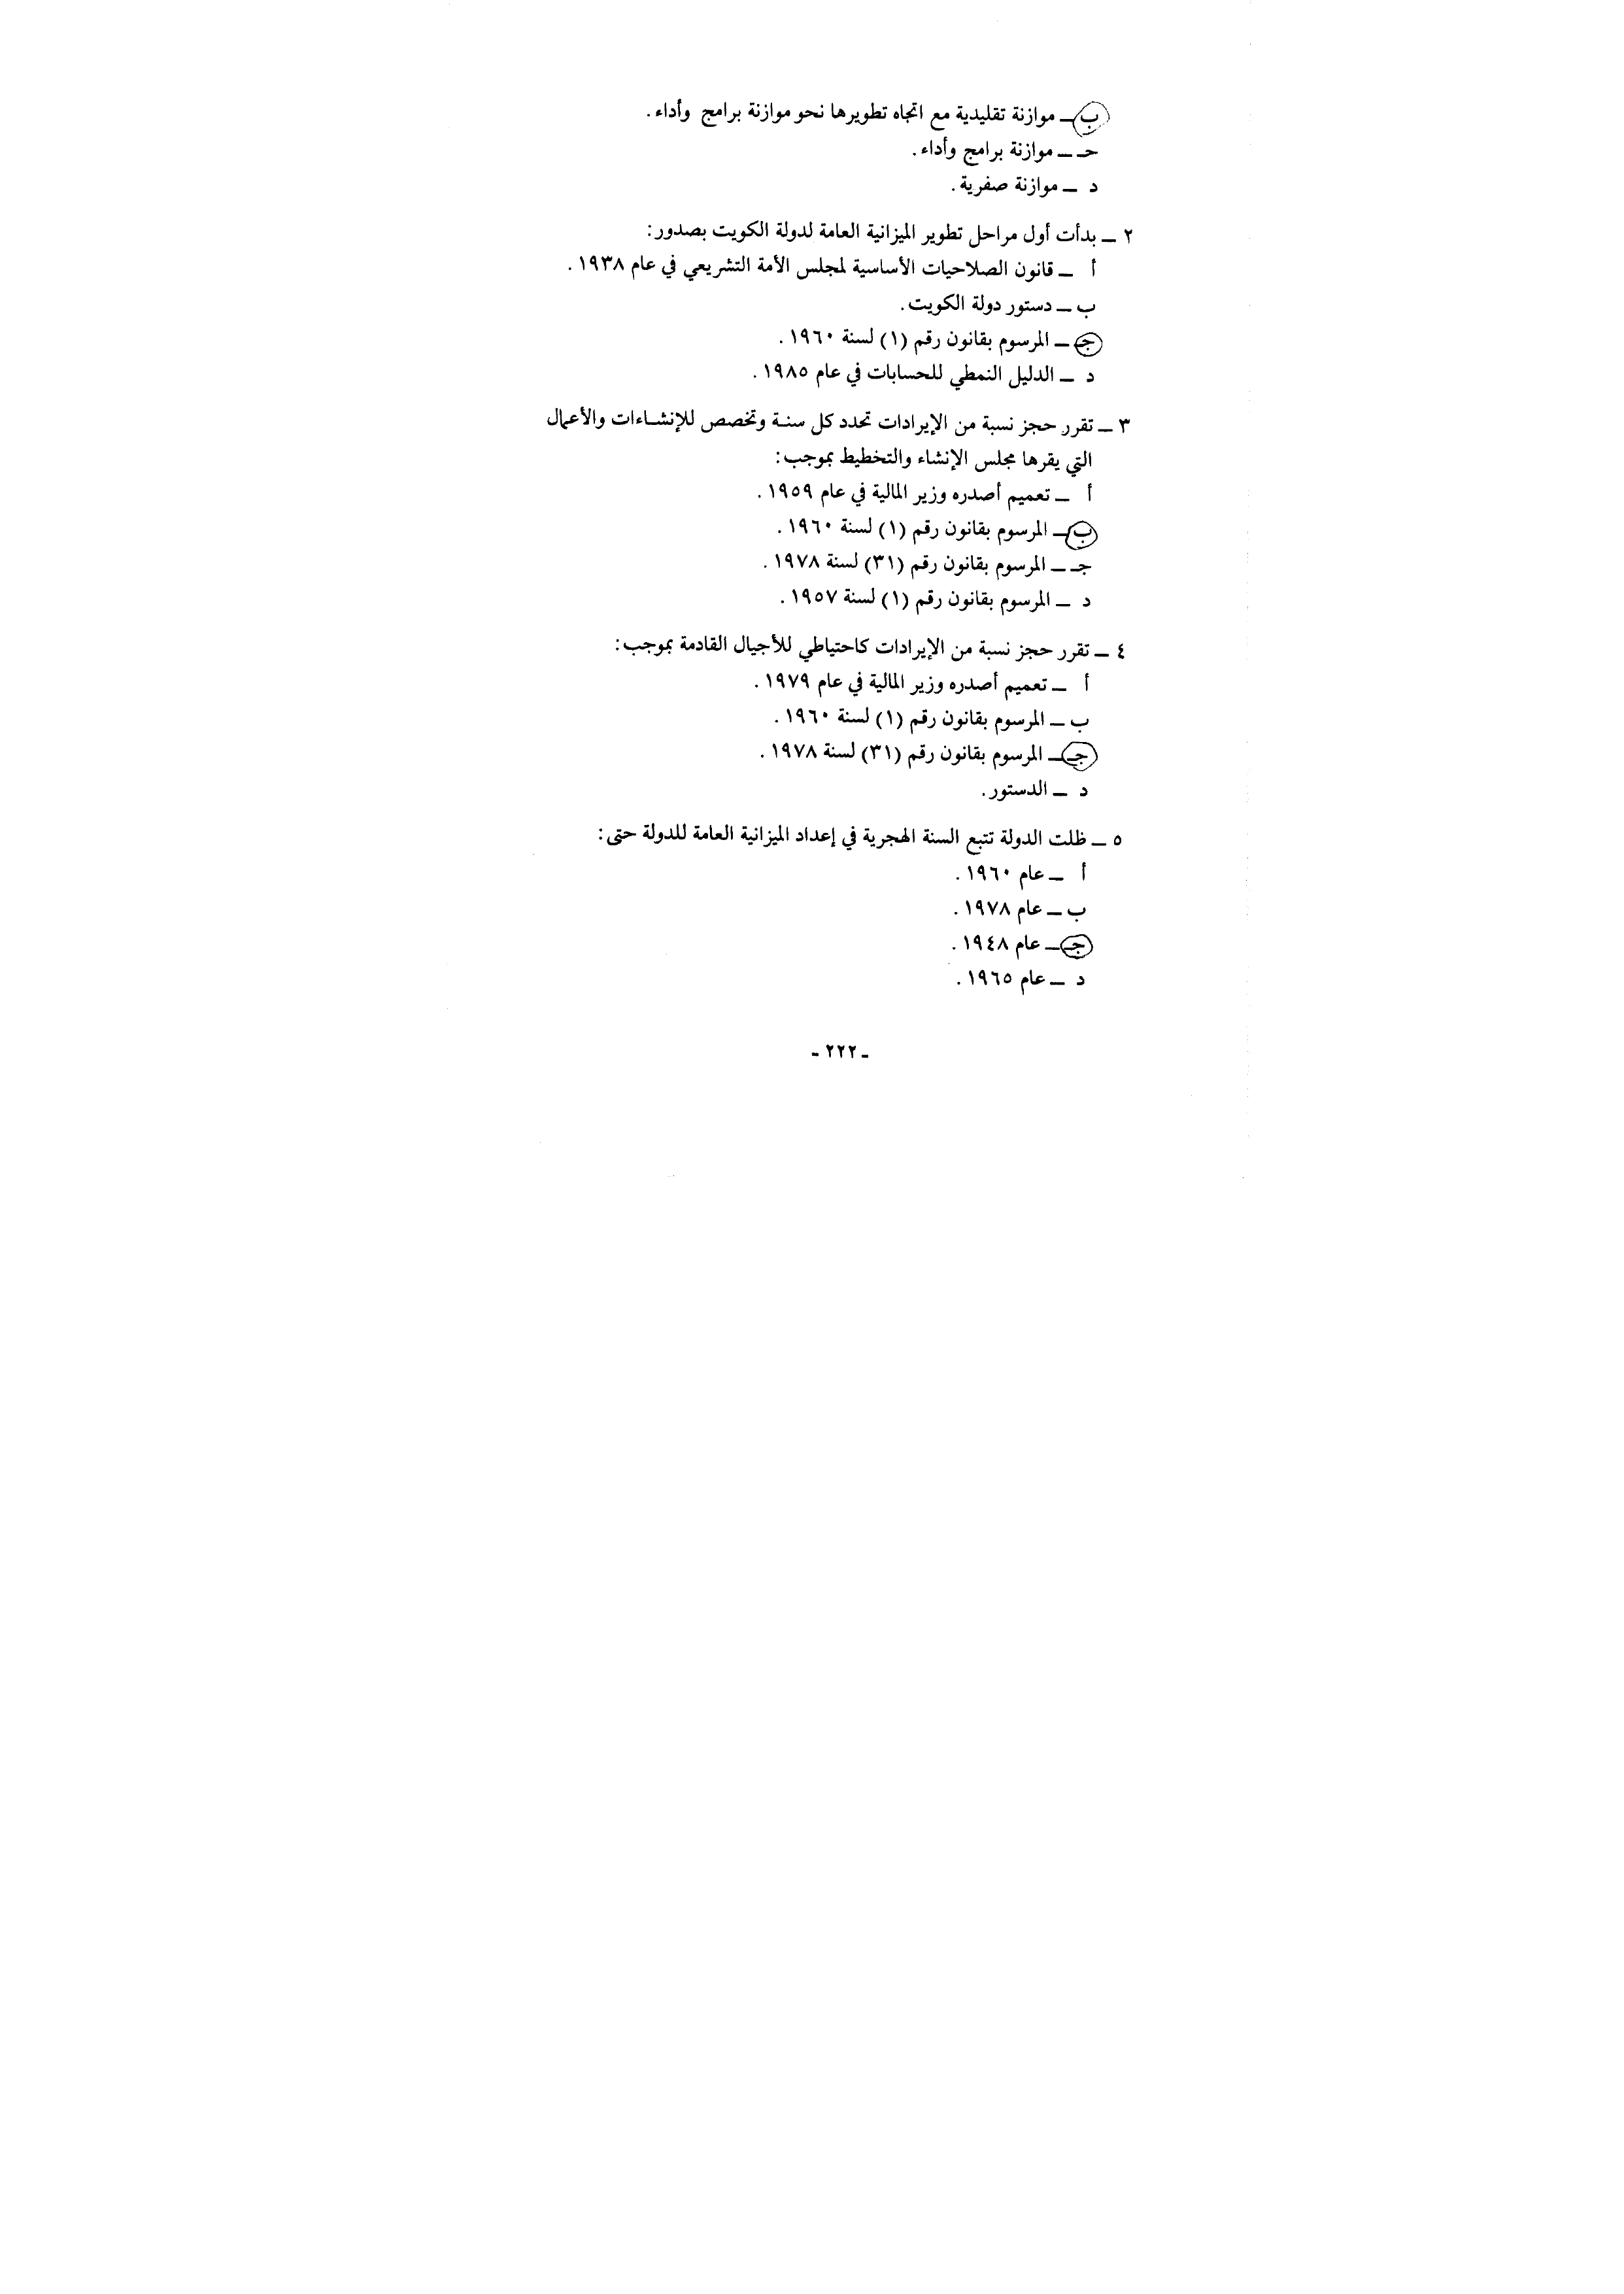 ب ــ موازنة تقليدية مع اتجاه تطويرها نحو موازنة برامج وأداء.
حـ ــ موازنة برامج وأداء.
د ــ موازنة صفرية.
٢ ــ بدأت أول مراحل تطوير الميزانية العامة لدولة الكويت بصدور:
أ ــ قانون الصلاحيات الأساسية لمجلس الأمة التشريعي في عام ١٩٣٨.
ب ــ دستور دولة الكويت.
جـ ــ المرسوم بقانون رقم (١) لسنة ١٩٦٠.
د ــ الدليل النمطي للحسابات في عام ١٩٨٥.
٣ ــ تقرر حجز نسبة من الإيرادات تحدد كل سنة وتخصص للإنشاءات والأعمال
التي يقرها مجلس الإنشاء والتخطيط بموجب:
أ ــ تعميم أصدره وزير المالية في عام ١٩٥٩.
ب ــ المرسوم بقانون رقم (١) لسنة ١٩٦٠.
جـ ــ المرسوم بقانون رقم (٣١) لسنة ١٩٧٨.
د ــ المرسوم بقانون رقم (١) لسنة ١٩٥٧.
٤ ــ تقرر حجز نسبة من الإيرادات كاحتياطي للأجيال القادمة بموجب:
أ ــ تعميم أصدره وزير المالية في عام ١٩٧٩.
ب ــ المرسوم بقانون رقم (١) لسنة ١٩٦٠.
جـ ــ المرسوم بقانون رقم (٣١) لسنة ١٩٧٨.
د ــ الدستور.
٥ ــ ظلت الدولة تتبع السنة الهجرية في إعداد الميزانية العامة للدولة حتى:
أ ــ عام ١٩٦٠.
ب ــ عام ١٩٧٨.
جـ ــ عام ١٩٤٨.
د ــ عام ١٩٦٥.
- ٢٢٢ -